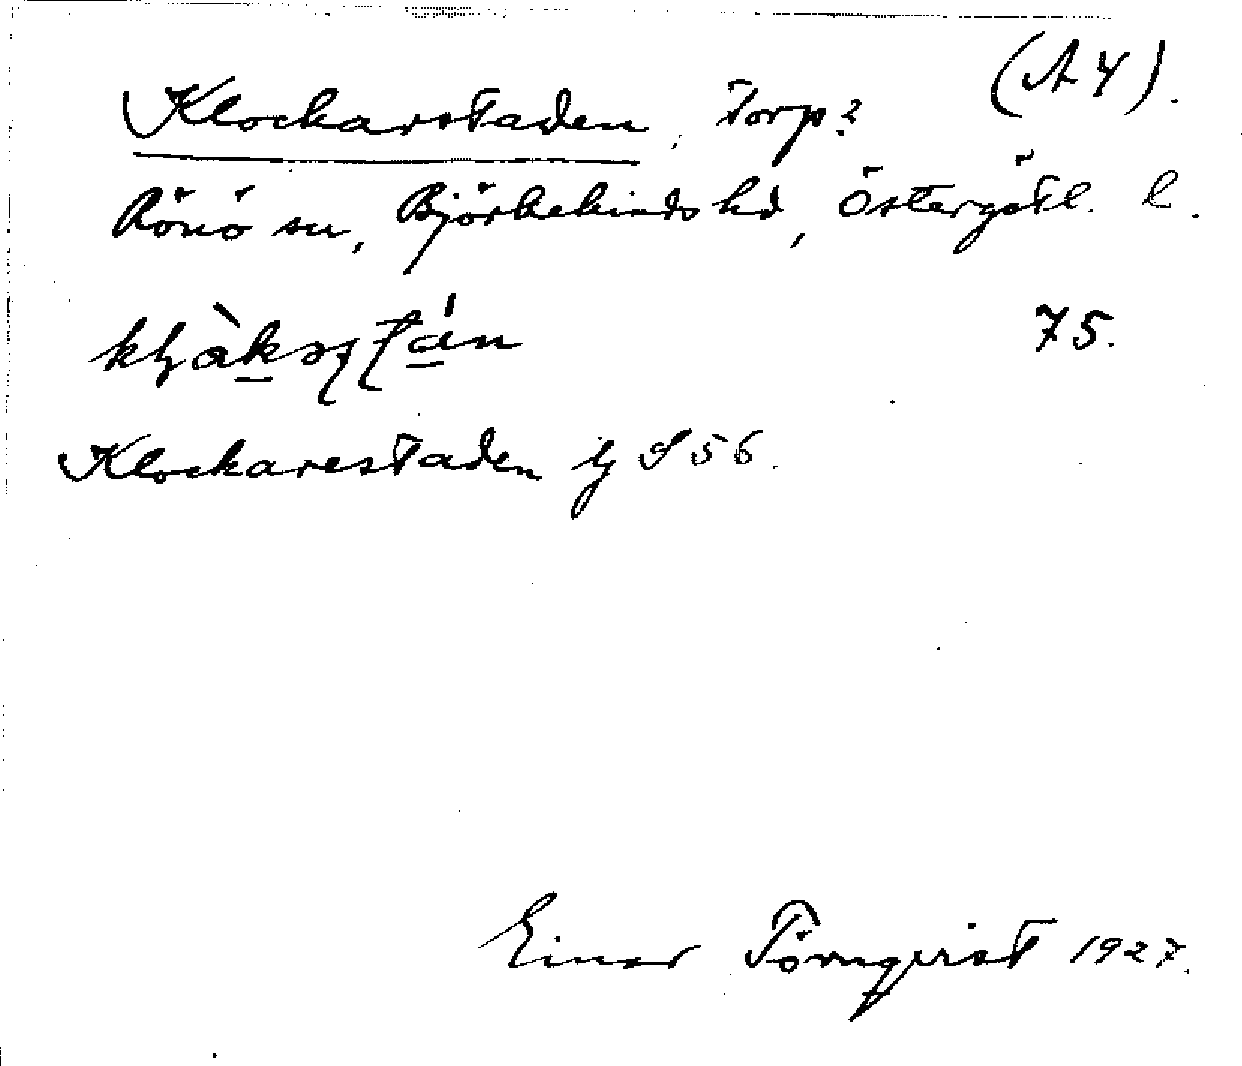 Klockarstaden, Torp? (A4).
Rönö sn, Björkekinds hd, Östergötl. l.
75.
Klockarestaden Ij S 56.
Einar Törnqvist 1927.